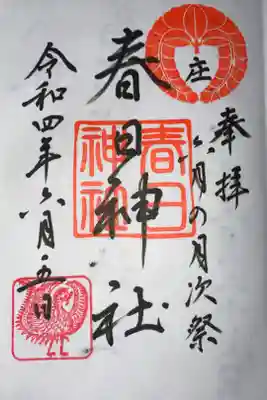 庄
奉拝
六月の月次祭
春日神社
春日神社
令和四年六月五日